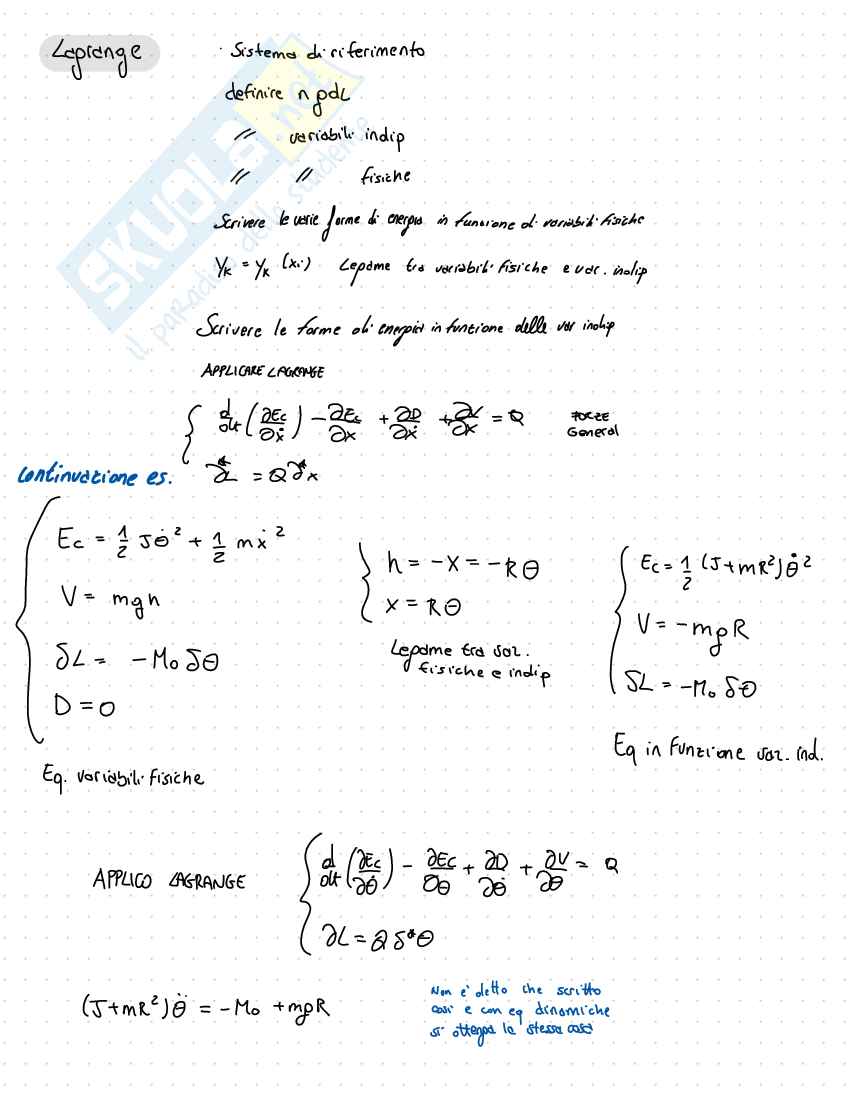 Lagrange
· Sistema di riferimento
definire n gdL
// variabili indip
// // fisiche
Scrivere le varie forme di energia in funzione di variabili fisiche
Yₖ = Yₖ (xᵢ) Legame tra variabili fisiche e var. indip
Scrivere le forme di energia in funzione delle var indip
APPLICARE LAGRANGE
{ d/dt (∂Ec/∂ẋ) - ∂Ec/∂x + ∂D/∂ẋ + ∂V/∂x = Q FORZE General
∂*L = Q ∂*x
continuazione es.
Ec = 1/2 Jθ̇² + 1/2 mẋ²
V = mgh
δL = -M₀ δθ
D = 0
Eq. variabili fisiche
h = -x = -Rθ
x = Rθ
Legame tra var.
fisiche e indip
Ec = 1/2 (J+mR²)θ̇²
V = -mgR
δL = -M₀ δθ
Eq in funzione var. ind.
APPLICO LAGRANGE
{ d/dt (∂Ec/∂θ̇) - ∂Ec/∂θ + ∂D/∂θ̇ + ∂V/∂θ = Q
∂L = Q δ*θ
(J+mR²)θ̈ = -M₀ + mgR
Non è detto che scritto
così e con eq dinamiche
si ottenga la stessa cosa
SKUOLA.net
il paradiso dello studente